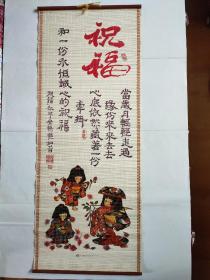 祝福
當歲月輕輕走過
緣份來來去去
心底依然藏著一份
牽掛
和一份永恒誠心的祝福